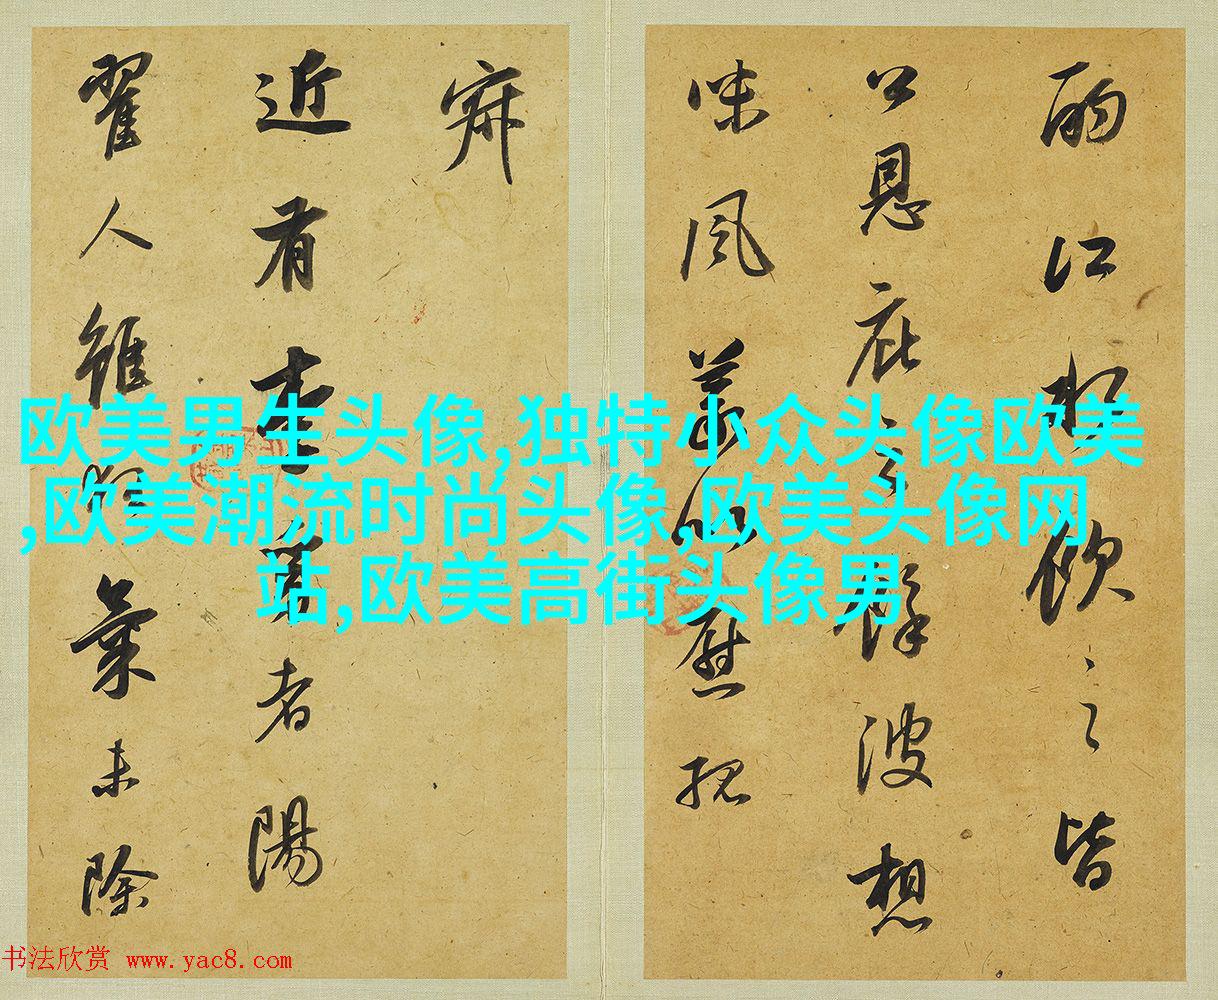 江飲之皆
公恩庇之餘波想
味風義以慰
近有者陽
翟人雖氣未除
欧美男生头像,独特小众头像欧美
,欧美潮流时尚头像,欧美头像网
站,欧美高街头像男
书法欣赏 www.yac8.com